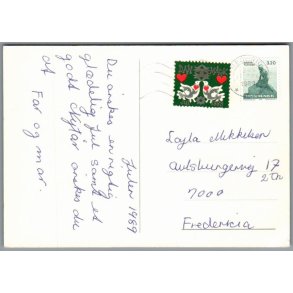 Julen 1989
Du ønskes en rigtig
glædelig jul samt et
godt Nytår ønskes du
af
Far og mor.
320
Layla Mikkelsen
17
2 th
7000
Fredericia